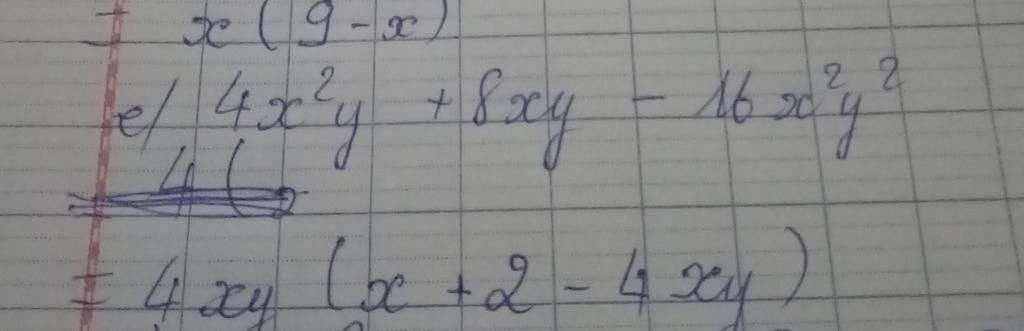 = x(9 - x)
e/ 4x²y + 8xy - 16x²y²
4(
= 4xy (x + 2 - 4xy)